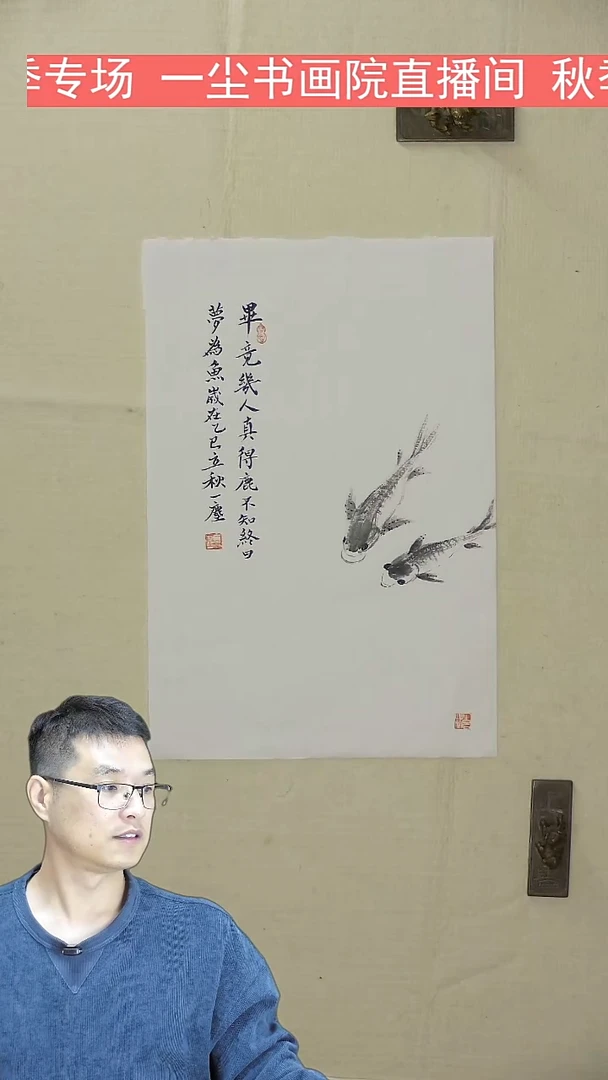 季专场 一尘书画院直播间 秋季
畢竟幾人真得鹿不知終日
夢為魚歲在乙巳立秋一塵